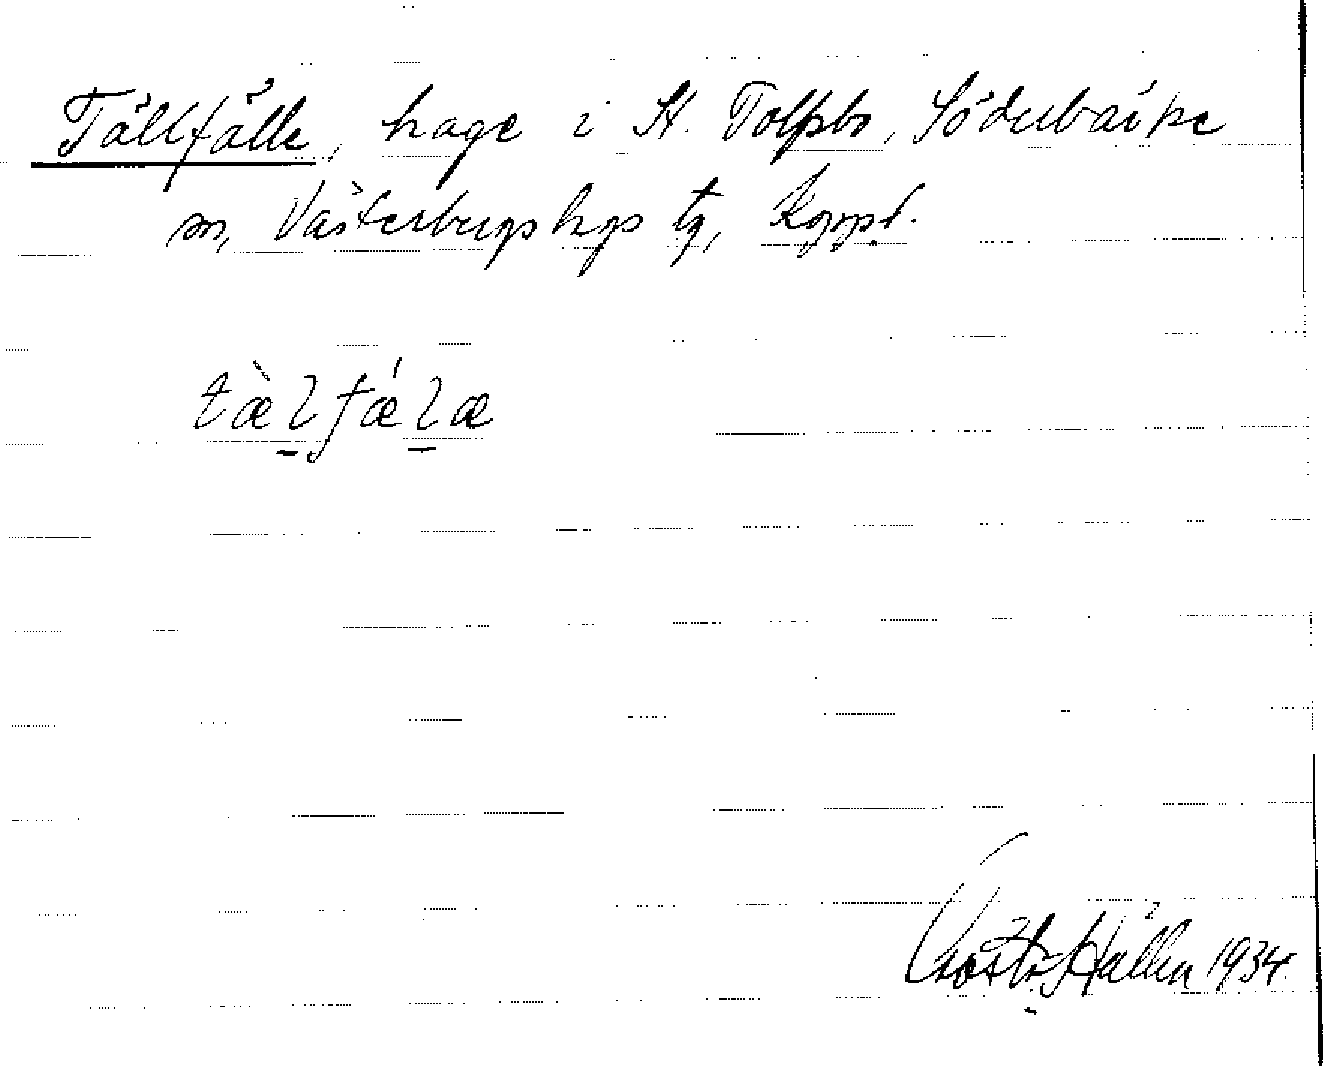 Tällfälle, hage i St. Tolpbo, Söderbärke
sn, Västerbergs hgs tg, Koppb.
tæ̀lfǽlæ
Gösta Hallén 1934.